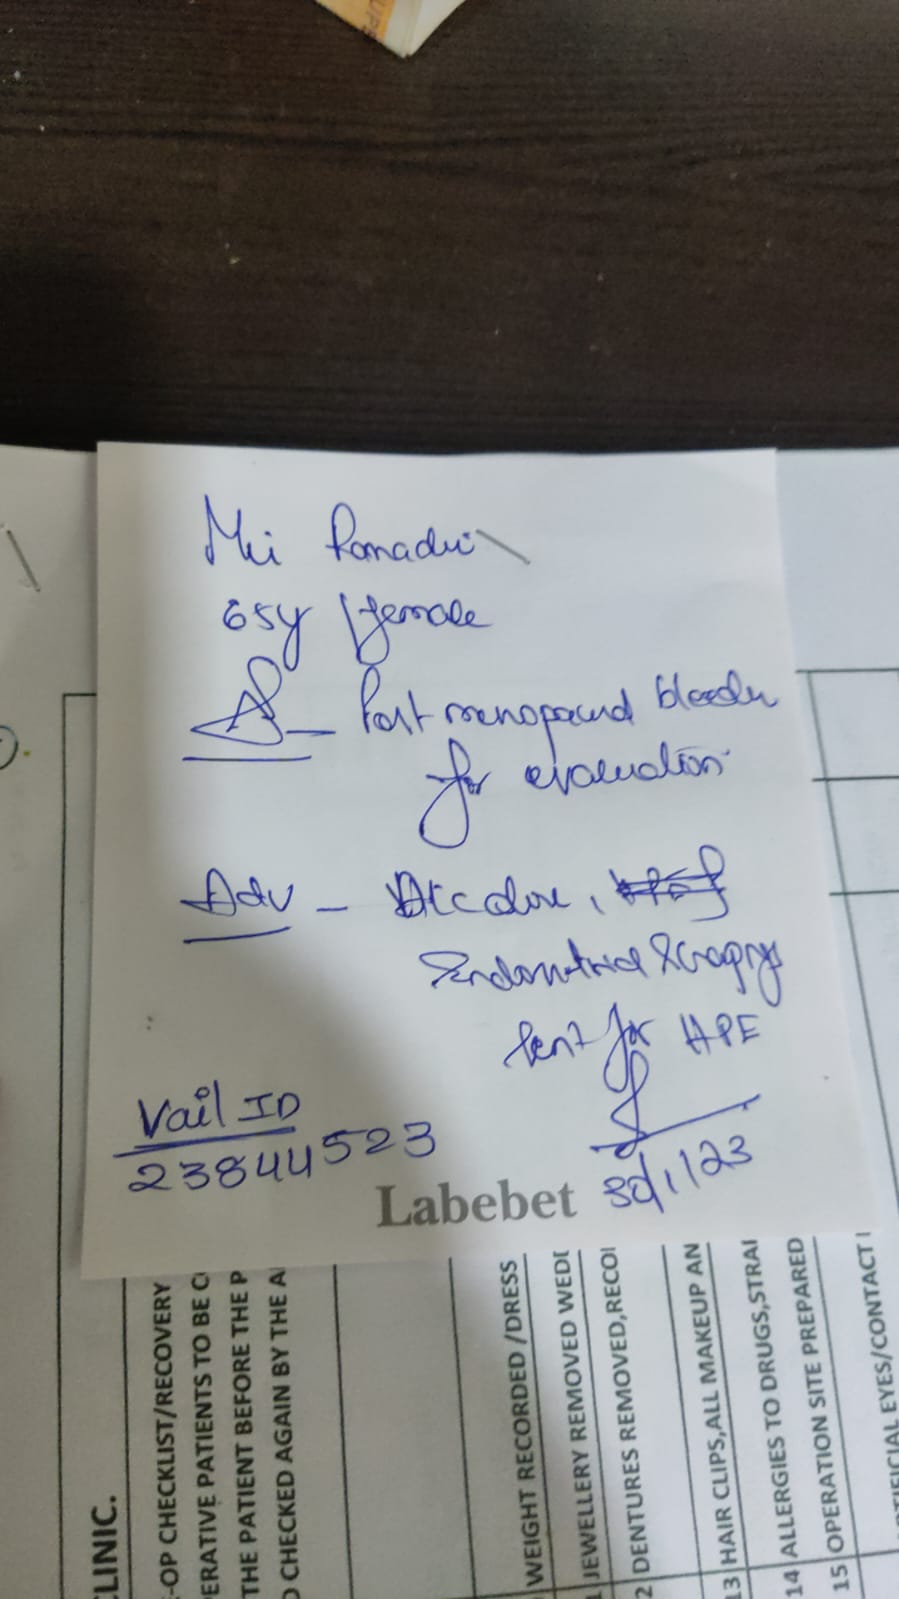 65y / female
Post menopausal bleeder
for evaluation
Adv - D&C done,
Endometrial Scrapings
Sent for HPE
Vail ID
23844523
Labebet
CLINIC.
-OP CHECKLIST/RECOVERY
ERATIVE PATIENTS TO BE
THE PATIENT BEFORE THE P
CHECKED AGAIN BY THE A
WEIGHT RECORDED /DRESS
JEWELLERY REMOVED WED
2 DENTURES REMOVED,RECO
13 HAIR CLIPS,ALL MAKEUP AN
14 ALLERGIES TO DRUGS,STRA
15 OPERATION SITE PREPARED
EYES/CONTACT